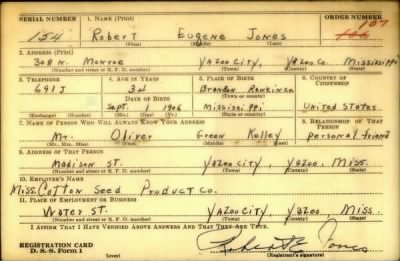 SERIAL NUMBER 1. NAME (Print) ORDER NUMBER
154 Robert Eugene Jones 107
(First) (Middle) (Last)
2. ADDRESS (Print)
308 N. Monroe Yazoo City, Yazoo Co. Mississippi
(Number and street or R. F. D. number) (Town) (County) (State)
3. TELEPHONE 4. AGE IN YEARS 5. PLACE OF BIRTH 6. COUNTRY OF CITIZENSHIP
691J 34 Brandon Rankin
DATE OF BIRTH (Town) (County)
Sept. 1 1906 Mississippi United States
(Exchange) (Number) (Mo.) (Day) (Yr.) (State or country)
7. NAME OF PERSON WHO WILL ALWAYS KNOW YOUR ADDRESS 8. RELATIONSHIP OF THAT PERSON
Mr. Oliver Green Kelley personal friend
(Mr., Mrs., Miss) (First) (Middle) (Last)
9. ADDRESS OF THAT PERSON
Madison St. Yazoo City, Yazoo, Miss.
(Number and street or R. F. D. number) (Town) (County) (State)
10. EMPLOYER'S NAME
Miss. Cotton Seed Product Co.
11. PLACE OF EMPLOYMENT OR BUSINESS
Water St. Yazoo City, Yazoo Miss.
(Number and street or R. F. D. number) (Town) (County) (State)
I AFFIRM THAT I HAVE VERIFIED ABOVE ANSWERS AND THAT THEY ARE TRUE.
REGISTRATION CARD
D. S. S. Form 1 (over) Robert E. Jones
(Registrant's signature)